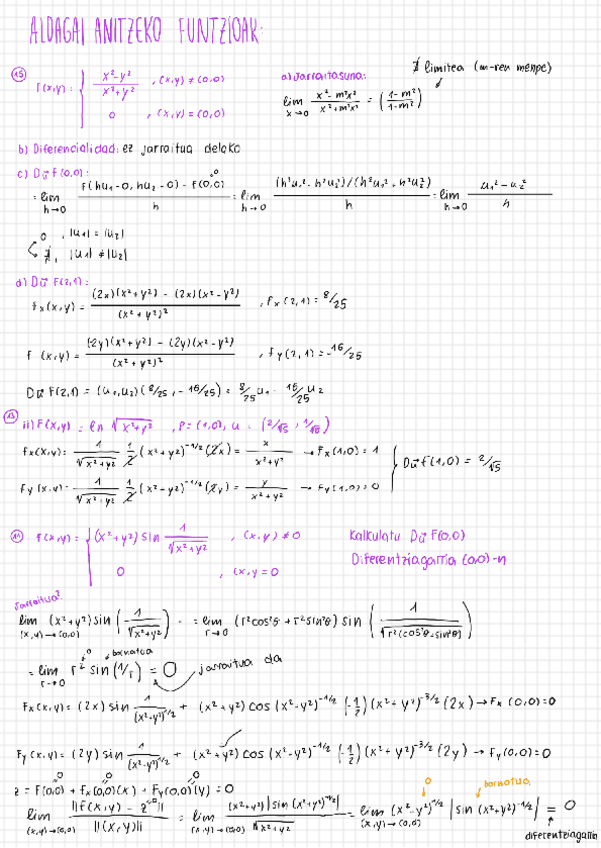 ALDAGAI ANITZEKO FUNTZIOAK:
15 f(x,y) = { x²-y² / x²+y² , (x,y) ≠ (0,0)
0 , (x,y) = (0,0)
a) Jarraitasuna: ∄ limitea (m-ren menpe)
lim x→0 x²-m²x² / x²+m²x² = (1-m² / 1-m²)
b) Diferencialidad: ez jarraitua delako
c) Dū f(0,0):
= lim h→0 f(hu₁-0, hu₂-0) - f(0,0) / h = lim h→0 (h²u₁²-h²u₂²)/(h²u₁²+h²u₂²) / h = lim h→0 u₁²-u₂² / h
0 , |u₁| = |u₂|
∄ , |u₁| ≠ |u₂|
d) Dū f(2,1):
fx(x,y) = (2x)(x²+y²) - (2x)(x²-y²) / (x²+y²)² , fx(2,1) = 8/25
f (x,y) = (-2y)(x²+y²) - (2y)(x²-y²) / (x²+y²)² , fy(2,1) = -16/25
Dū f(2,1) = (u₁,u₂)(8/25, -16/25) = 8/25 u₁ - 16/25 u₂
13 ii) F(x,y) = ln √x²+y² , P=(1,0), u = (2/√5, 1/√5)
fx(x,y) = 1/√x²+y² 1/2 (x²+y²)^-1/2 (2x) = x / x²+y² → fx(1,0) = 1
Dū f(1,0) = 2/√5
Fy(x,y) = 1/√x²+y² 1/2 (x²-y²)^-1/2 (2y) = y / x²+y² → fy(1,0) = 0
11 f(x,y) = { (x²+y²) sin 1/√x²+y² , (x,y) ≠ 0
0 , (x,y = 0
Kalkulatu Dū F(0,0)
Diferentziagarria (0,0)-n
Jarraitua?
lim (x,y)→(0,0) (x²+y²) sin (1/√x²+y²) = lim r→0 (r²cos²θ + r²sin²θ) sin (1/√r²(cos²θ+sin²θ))
= lim r→0 r² sin(1/r) = 0 jarraitua da
0 bornatua
Fx(x,y) = (2x) sin 1/(x²-y²)^1/2 + (x²+y²) cos (x²-y²)^-1/2 (-1/2) (x²+y²)^-3/2 (2x) → Fx(0,0) = 0
Fy(x,y) = (2y) sin 1/(x²-y²)^1/2 + (x²+y²) cos (x²-y²)^-1/2 (-1/2) (x²+y²)^-3/2 (2y) → fy(0,0) = 0
z = F(0,0) + fx(0,0)(x) + Fy(0,0)(y) = 0
lim (x,y)→(0,0) ||f(x,y) - z|| / ||(x,y)|| = lim (x,y)→(0,0) (x²+y²)|sin (x²+y²)^-1/2| / √x²+y² = lim (x,y)→(0,0) (x²-y²)^1/2 |sin (x²+y²)^-1/2| = 0
0 bornatua
diferentziagarria